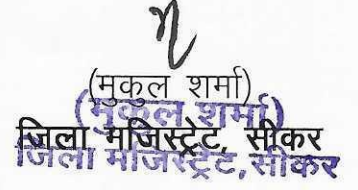 (मुकुल शर्मा)
(मुकुल शर्मा)
जिला मजिस्ट्रेट, सीकर
जिला मजिस्ट्रेट, सीकर